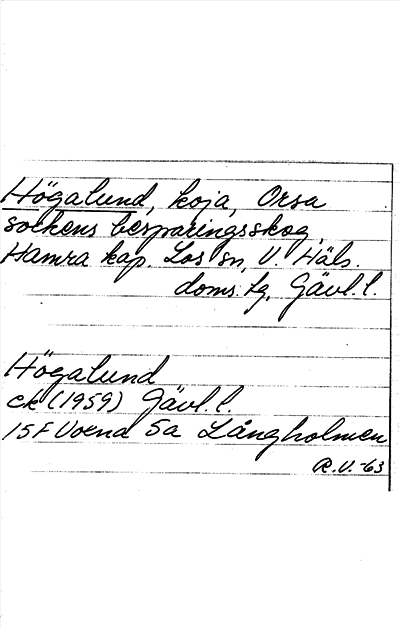 Högalund, koja, Orsa
sockens besparingsskog,
Hamra kap. Los sn, V. Häls.
doms. tg, Gävl. l.
Högalund
ek (1959) Gävl. l.
15F Voxna 5a Långholmen
R.V. -63